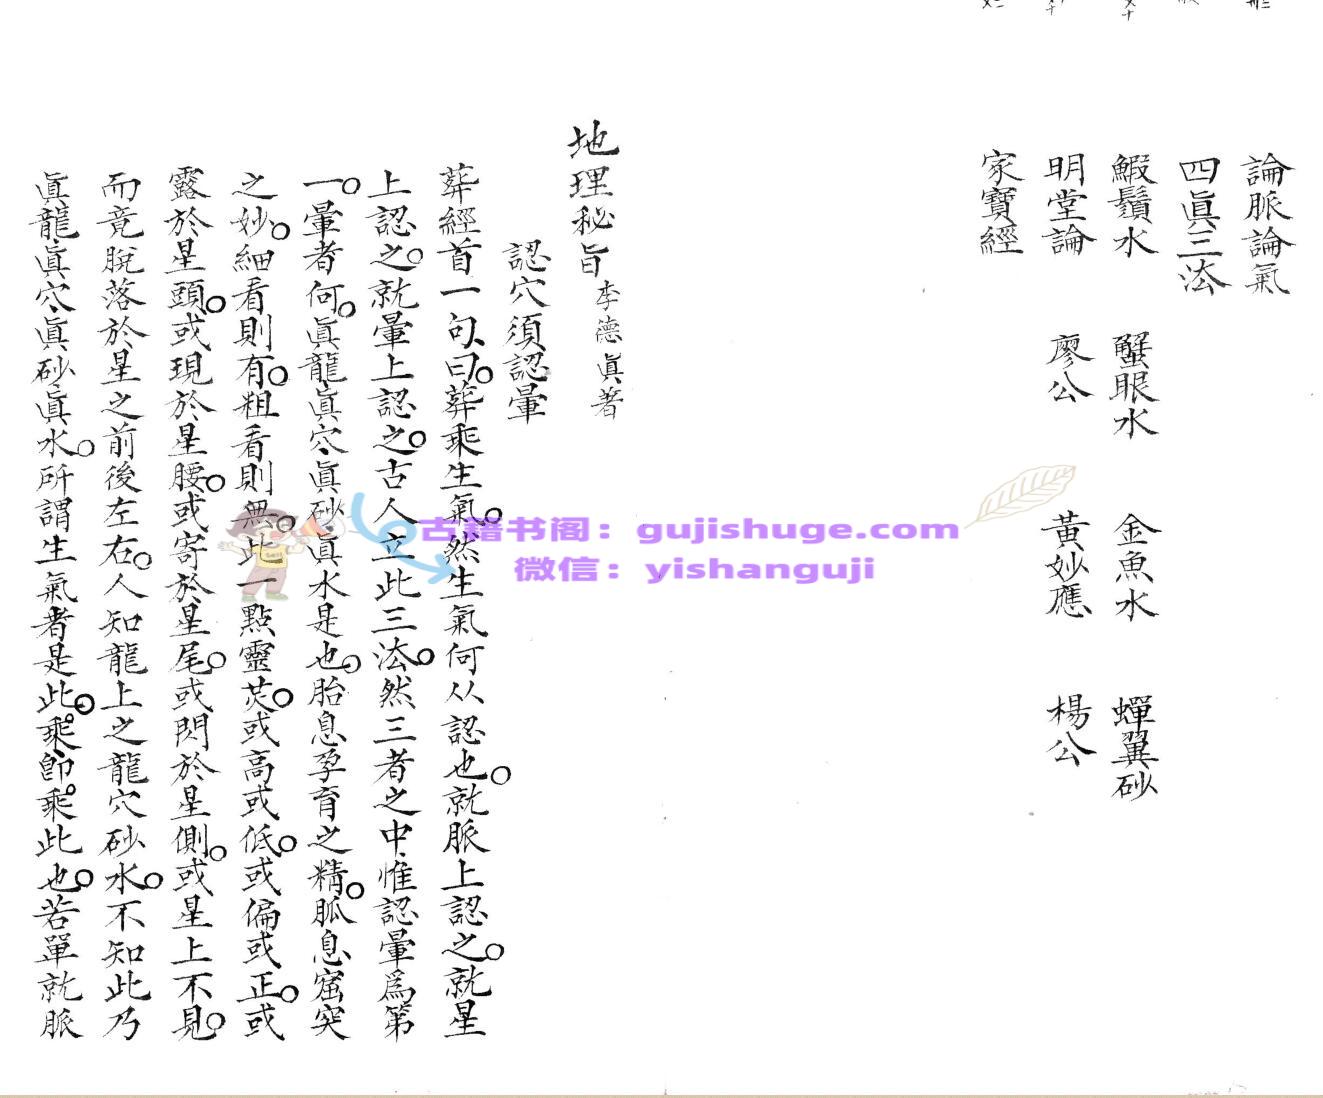 論脈論氣
四眞三法
鰕鬚水 蟹眼水 金魚水 蟬翼砂
明堂論 廖公 黃妙應 楊公
家寶經
地理秘旨 李德眞著
認穴須認暈
葬經首一句曰葬乘生氣然生氣何从認也就脈上認之就星
上認之就暈上認之古人立此三法然三者之中惟認暈爲第
一暈者何眞龍眞穴眞砂眞水是也胎息孕育之精胍息窟突
之妙細看則有粗看則無此一點靈芡或高或低或偏或正或
露於星頭或現於星腰或寄於星尾或閃於星側或星上不見
而竟脫落於星之前後左右人知龍上之龍穴砂水不知此乃
眞龍眞穴眞砂眞水所謂生氣者是此乘卽乘此也若單就脈
古籍书阁：gujishuge.com
微信：yishanguji